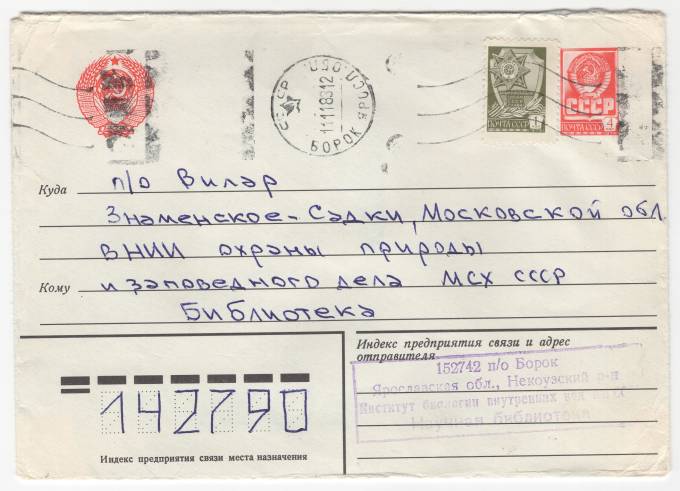 СССР USO UСОЛ РОССИ
111183 12
БОРОК
ПОЧТА СССР 1
СССР
ПОЧТА СССР 4
Куда п/о Вилар
Знаменское-Садки, Московской обл.
ВНИИ охраны природы
Кому и заповедного дела МСХ СССР
Библиотека
Индекс предприятия связи и адрес
отправителя
152742 п/о Борок
Ярославская обл., Некоузский р-н
Институт биологии внутренних вод
Научная библиотека
142790
Индекс предприятия связи места назначения